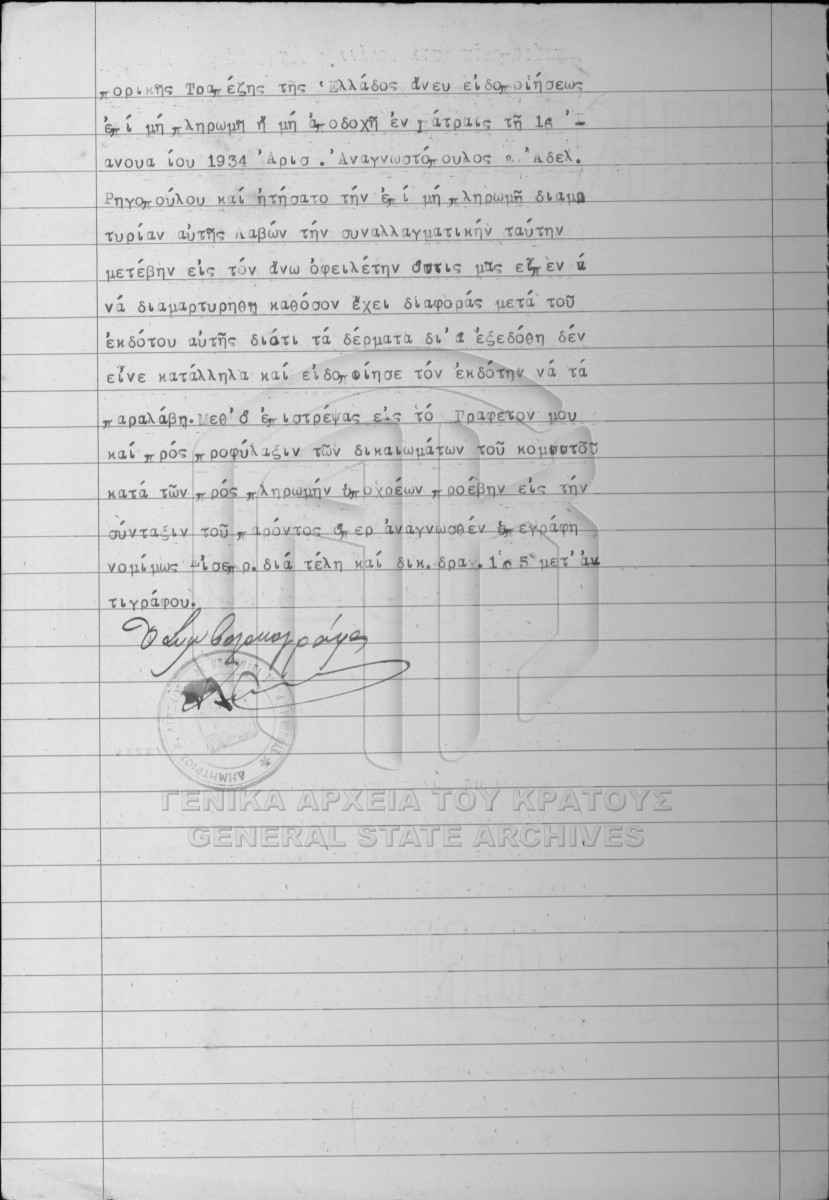 πορικῆς Τραπέζης τῆς Ἑλλάδος ἄνευ εἰδοποιήσεως
ἐπί μή πληρωμῃ ἤ μή ἀποδοχῆ ἐν Πάτραις τῇ
ανουα ίου 1934 Ἀρισ. Ἀναγνωστόπουλος Ἀδελ.
Ρηγοπούλου καί ᾐτήσατο τήν ἐπί μή πληρωμῆ διαμα
τυρίαν αὐτῆς Λαβών τήν συναλλαγματικήν ταύτην
μετέβην εἰς τόν ἄνω ὀφειλέτην ὅστις μας εἶπεν
νά διαμαρτυρηθῃ καθόσον ἔχει διαφοράς μετά τοῦ
ἐκδότου αὐτῆς διάτι τά δέρματα δι' ἐξεδόθη δέν
εἶνε κατάλληλα καί εἰδοποίησε τόν ἐκδότην νά τά
παραλάβῃ. Μεθ' ὅ ἐπιστρέψας εἰς τό Γραφεῖον μου
καί πρός προφύλαξιν τῶν δικαιωμάτων τοῦ κομιστοῦ
κατά τῶν πρός πληρωμήν ὑποχρέων προέβην εἰς τήν
σύνταξιν τοῦ παρόντος ὅπερ ἀναγνωσθέν ὑπεγράφη
νομίμως Εἰσεπρ. διά τέλη καί δικ. δρα. μετ' ἀν
τιγράφου.
Ὁ Συμβολαιογράφος
ΓΕΝΙΚΑ ΑΡΧΕΙΑ ΤΟΥ ΚΡΑΤΟΥΣ
GENERAL STATE ARCHIVES